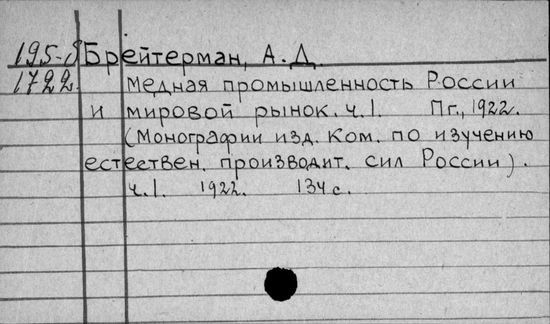 195-8 Брейтерман, А. Д.
1722. Медная промышленность России
и мировой рынок. ч. I. Пг., 1922.
(Монографии изд. Ком. по изучению
естествен. производит. сил России).
ч. I. 1922. 134 с.